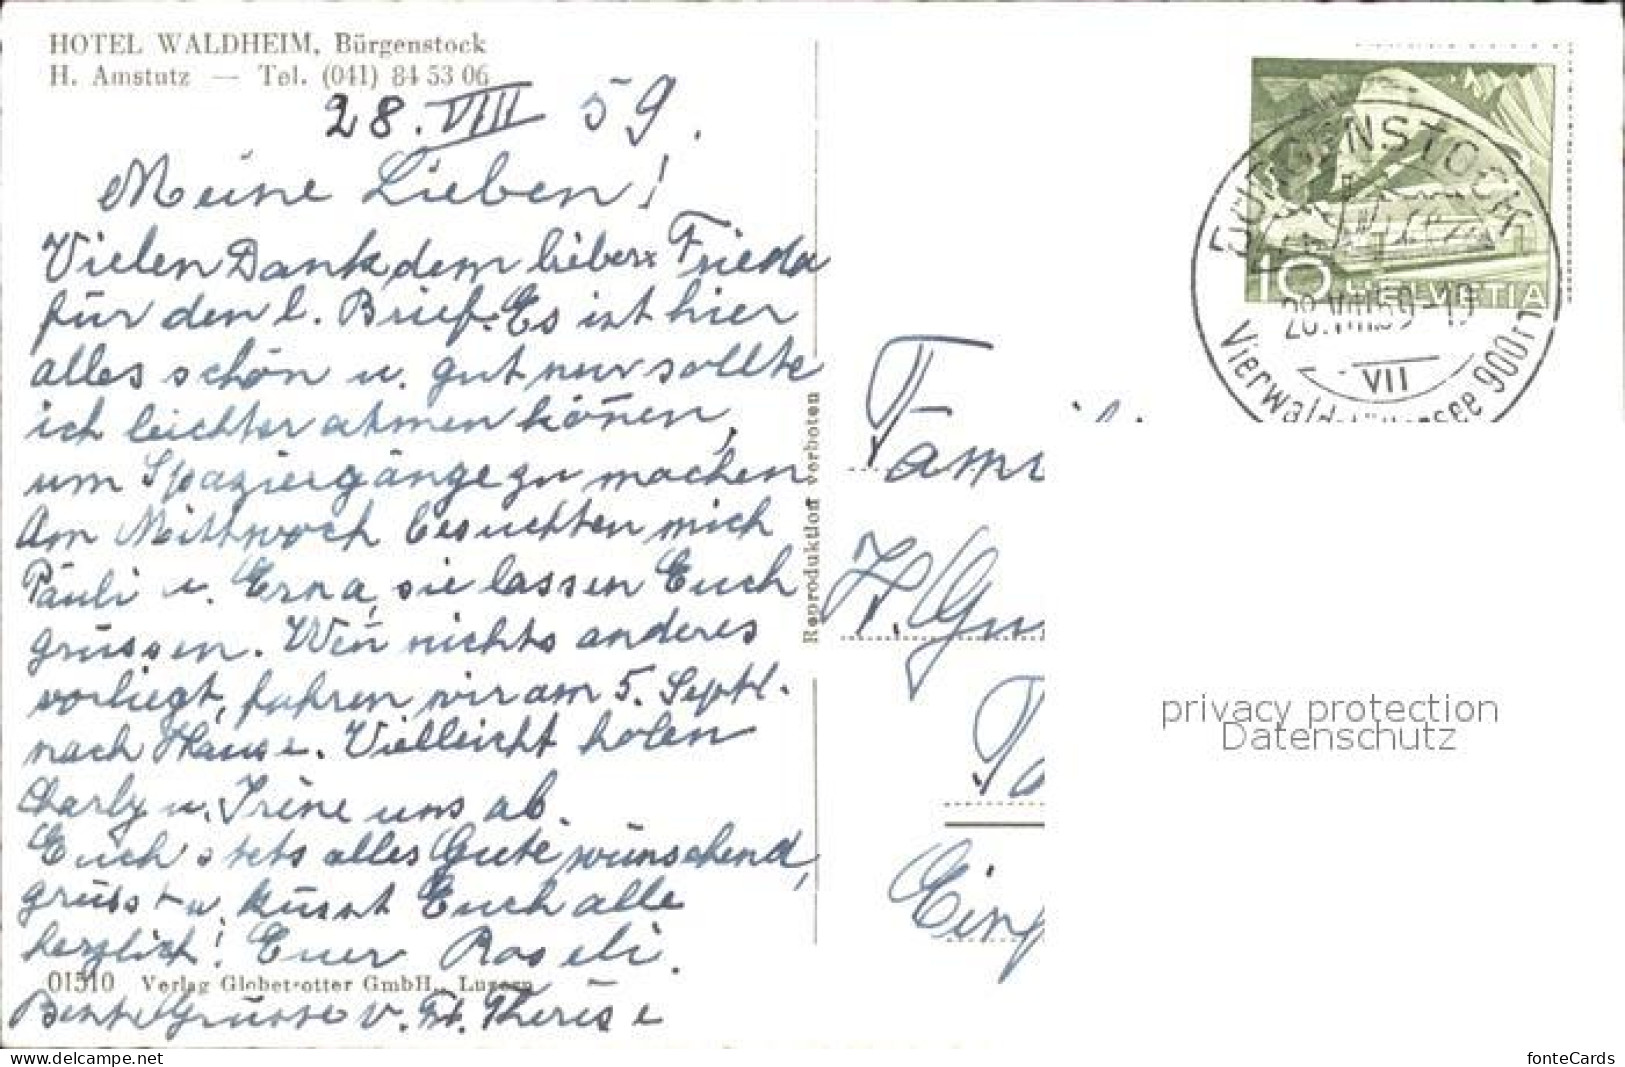 HOTEL WALDHEIM, Bürgenstock
H. Amstutz — Tel. (041) 84 53 06
28. VIII 59.
Meine Lieben!
Vielen Dank dem lieben Frieda
für den l. Brief. Es ist hier
alles schön u. gut nur sollte
ich leichter atmen kön̄en,
um Spaziergänge zu machen
Am Mittwoch besuchten mich
Päuli u. Erna, sie lassen Euch
grüssen. Wen̄ nichts anderes
vorliegt, fahren wir am 5. Sept.
nach Hause. Vielleicht holen
Charly u. Irène uns ab.
Euch stets alles Gute wünschend,
grüsst u. küsst Euch alle
herzlich! Euer Roseli.
01510 Verlag Globetrotter GmbH., Luzern
Beste Grüsse v. Therese
Reproduktion verboten
BÜRGENSTOCK
10 HELVETIA
28.VIII.59-19
VII
Vierwaldstättersee 900m
Fami
H. Gu
Ta
Einf
privacy protection
Datenschutz
www.delcampe.net
fonteCards